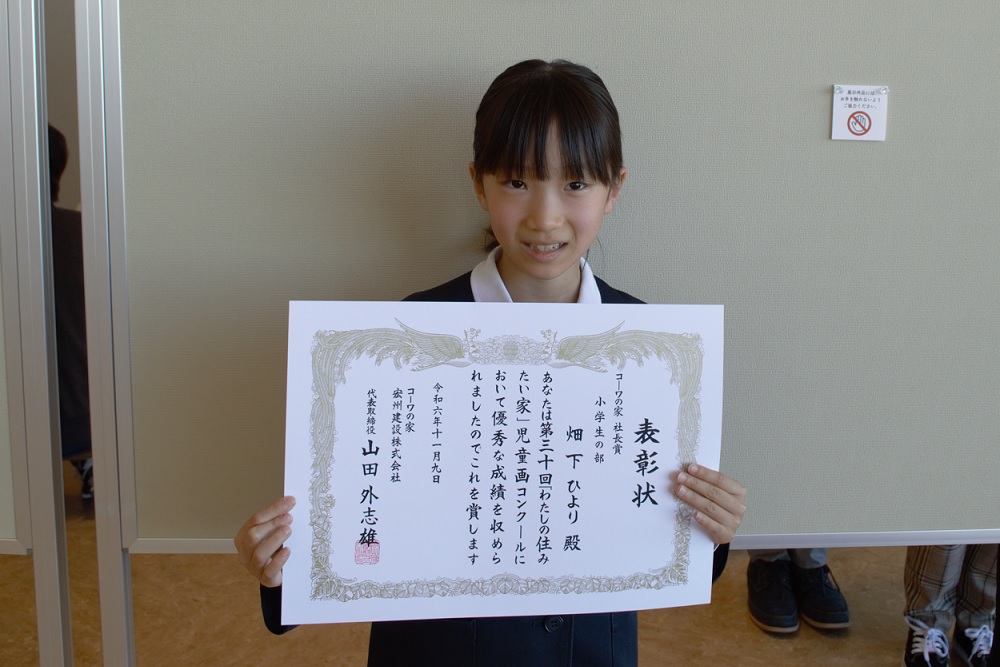 表彰状
コーワの家 社長賞
小学生の部
畑下 ひより 殿
あなたは第三十回「わたしの住み
たい家」児童画コンクールに
おいて優秀な成績を収めら
れましたのでこれを賞します
令和六年十一月九日
コーワの家
宏州建設株式会社
代表取締役 山田 外志雄
展示作品には
お手を触れないよう
ご協力ください。